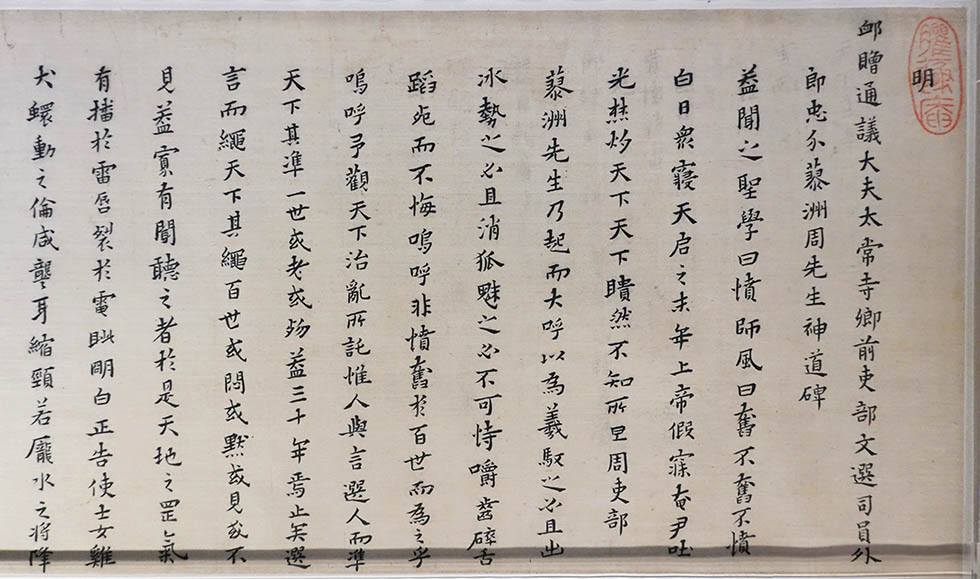 明
卹贈通議大夫太常寺卿前吏部文選司員外
郎忠介蓼洲周先生神道碑
蓋聞之聖學曰憤師風曰奮不奮不憤
白日衆寢天启之末年上帝假寐奄尹吐
光焚灼天下天下瞶然不知所呈周吏部
蓼洲先生乃起而大呼以為羲馭之必且出
冰勢之必且消狐魅之必不可恃嚼齒碎舌
蹈死而不悔嗚呼非憤奮於百世而為之乎
嗚呼予觀天下治亂所託惟人與言選人而準
天下其準一世或老或殤蓋三十年焉止矣選
言而繩天下其繩百世或悶或默或見或不
見蓋寡有聞聽之者於是天地之罡氣
有播於雷唇裂於電眦明白正告使士女雞
犬蠉動之倫咸聾耳縮頸若龐水之將降